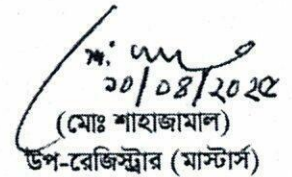 ২০/০৪/২০২৫
(মোঃ শাহাজামাল)
উপ-রেজিস্ট্রার (মাস্টার্স)